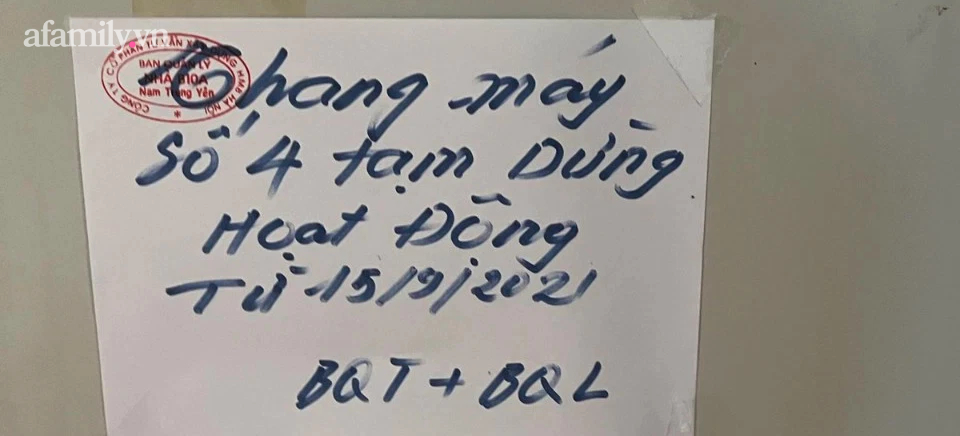 afamily.vn
CÔNG TY CỔ PHẦN TƯ VẤN XÂY DỰNG HMB HÀ NỘI
BAN QUẢN LÝ
NHÀ B10A
Nam Trung Yên
Thang máy
Số 4 tạm Dừng
Hoạt Động
Từ 15/9/2021
BQT + BQL